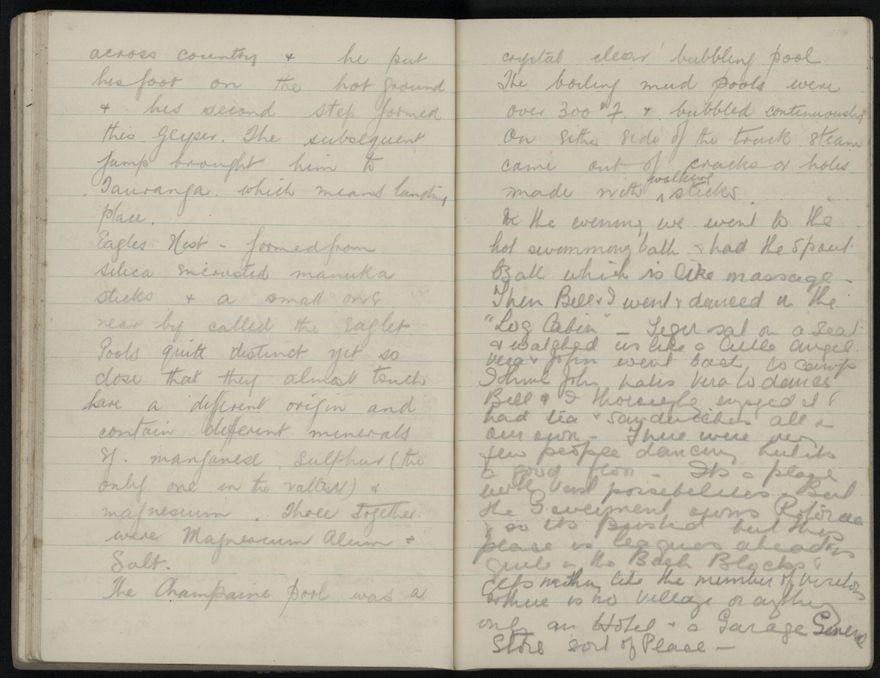 across country & he put
his foot on the hot ground
& his second step formed
this Geyser. The subsequent
jump brought him to
Tauranga which means landing
place.
Eagles Nest - formed from
silica encrusted manuka
sticks & a small one
near by called the Eaglet
Pools quite distinct yet so
close that they almost touch
have a different origin and
contain different minerals
manganese, Sulphur (the
only one in the valley) &
magnesium. Three together
were Magnesium Alum &
Salt.
The Champaine pool was a
crystal clear bubbling pool
The boiling mud pools were
over 300° F. & bubbled continuously
On either side of the track steam
came out of cracks or holes
made with walking sticks.
In the evening we went to the
hot swimming bath & had the Spout
Bath which is like massage -
Then Bill & I went & danced in the
"Log Cabin" - sat on a seat
& watched us like a little angel.
Vera & John went back to camp
I think John hates Vera to dance
Bill & I thoroughly enjoyed it &
had tea & sandwiches all on
our own - There were very
few people dancing but its
a good floor - Its a place
with vast possibilities - But
the Government owns Rotorua
& so its pushed but this
place is leagues ahead its
quite in the Back Blocks &
gets nothing like the number of visitors
& there is no village or anything
only an Hotel & a Garage General
Store sort of Place -